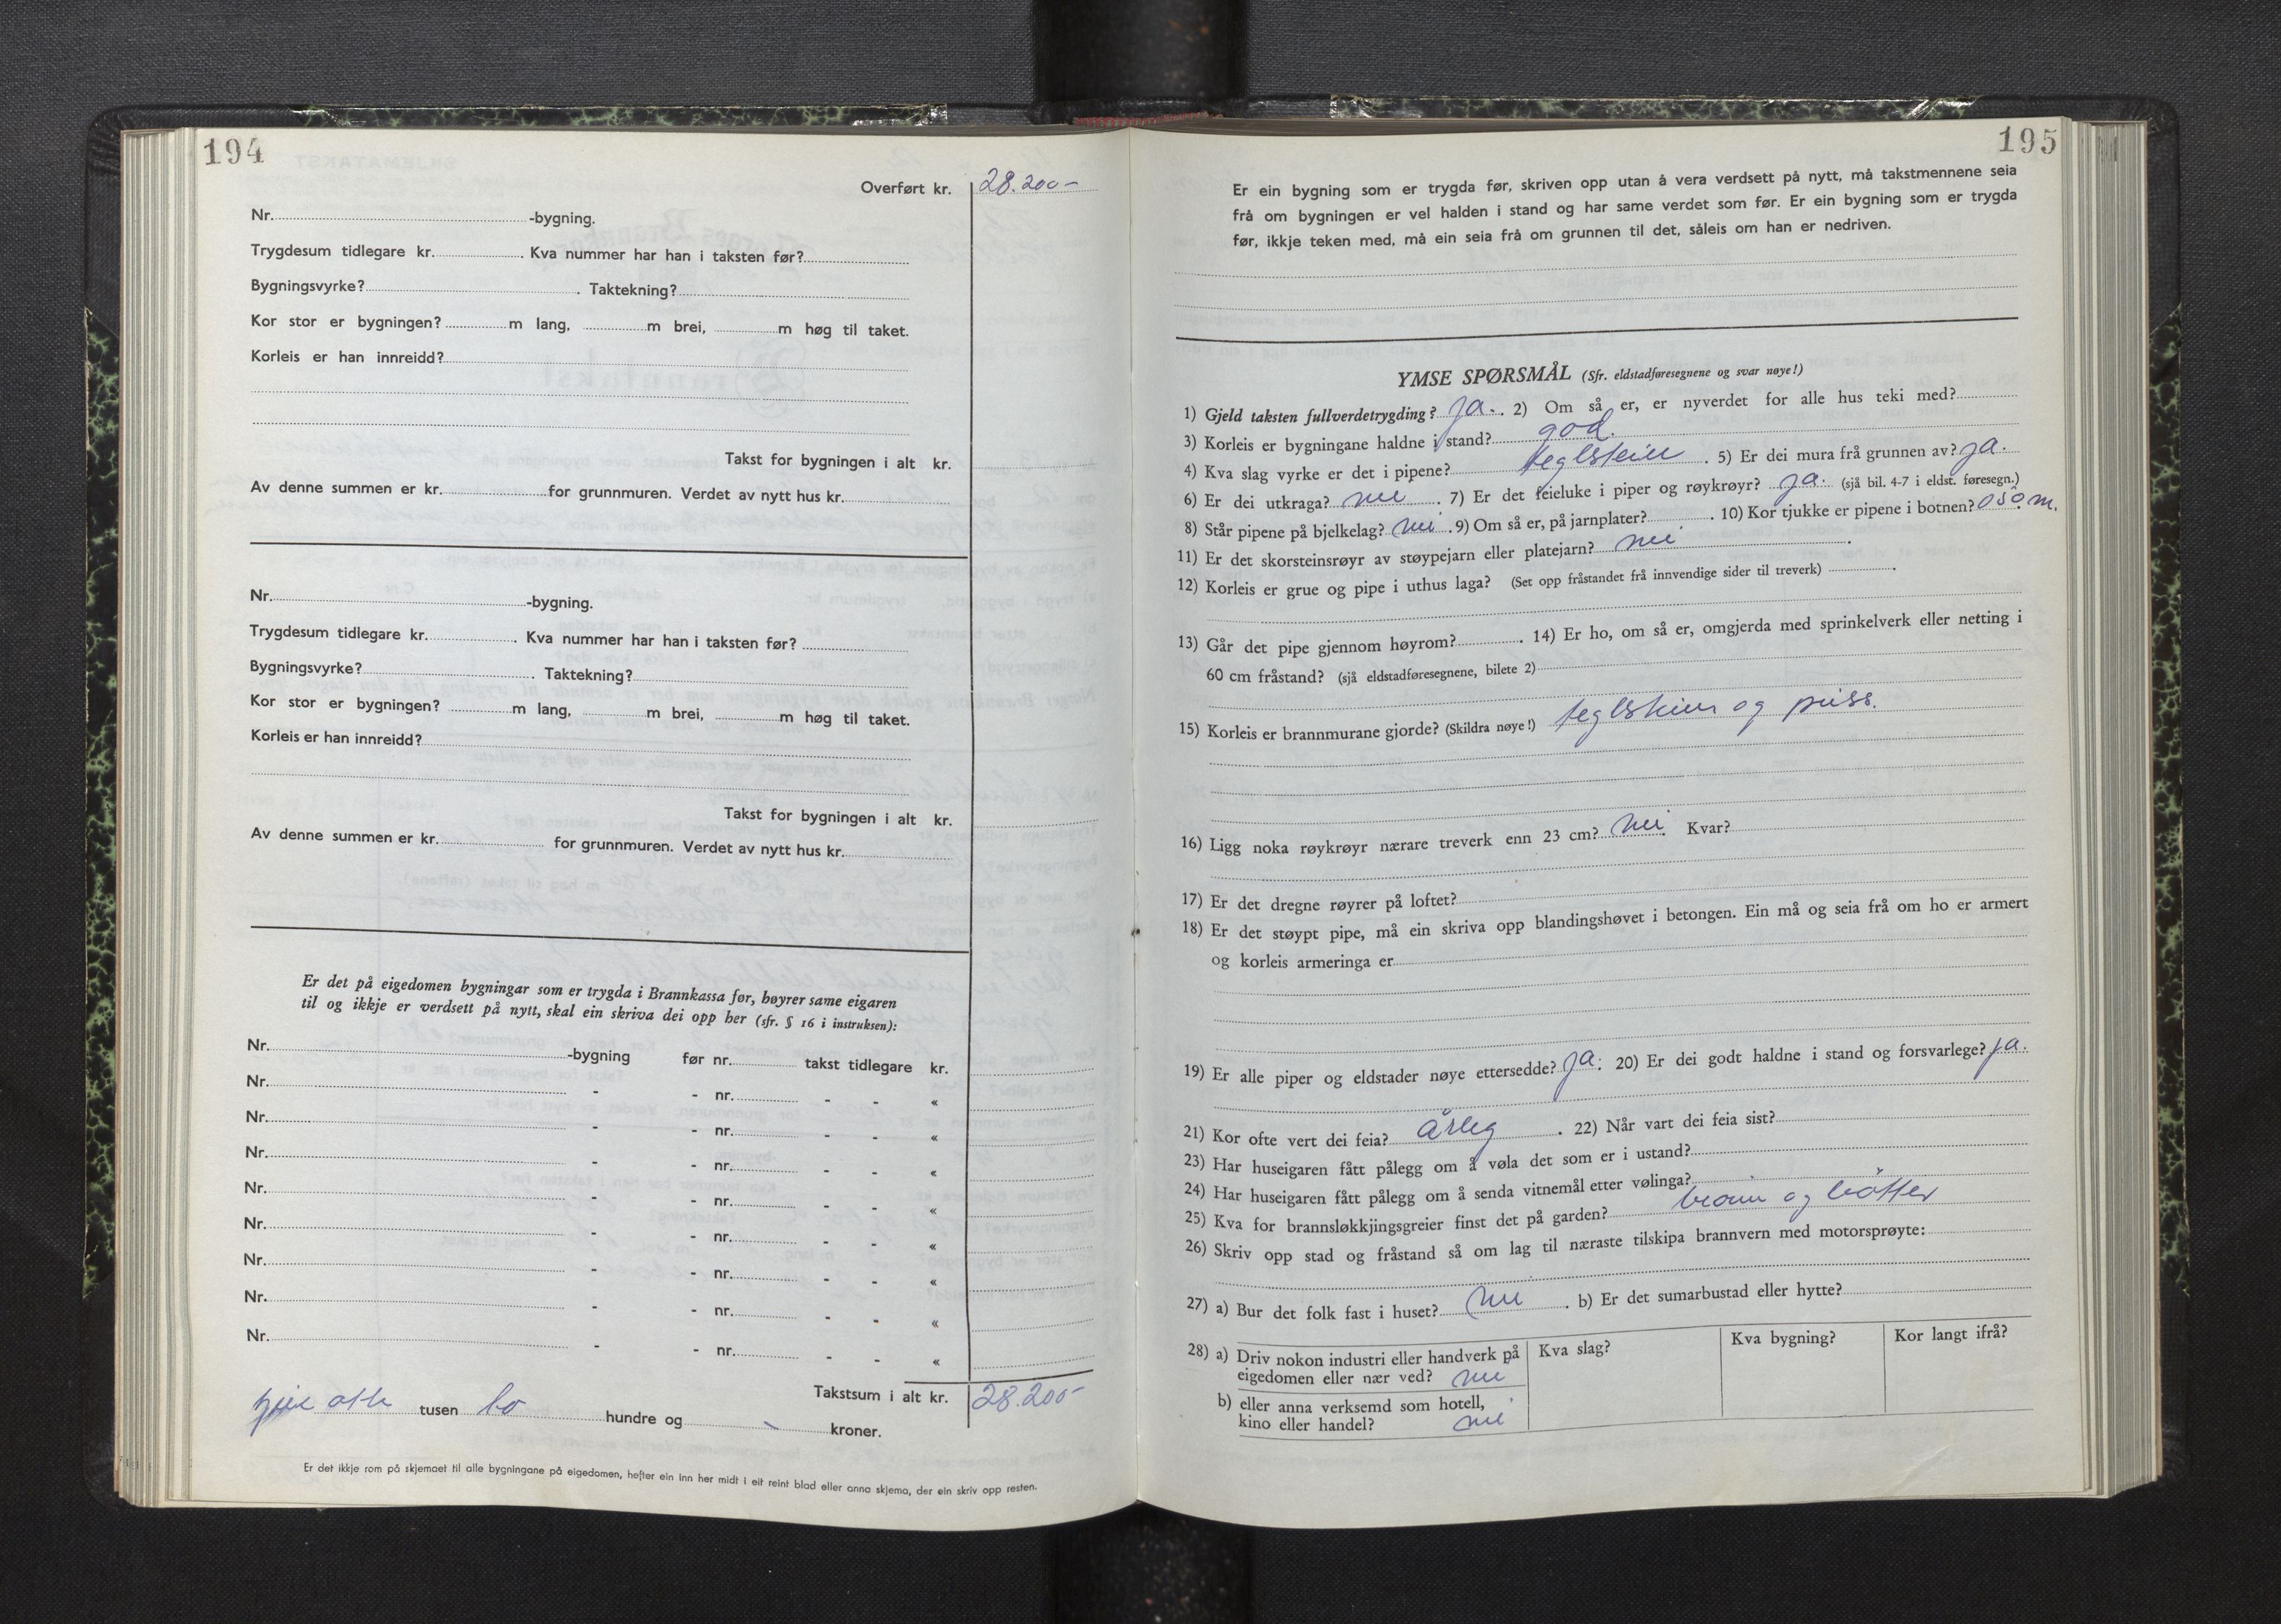 194
Overført kr. 28.200-
Nr. -bygning.
Trygdesum tidlegare kr. . Kva nummer har han i taksten før?
Bygningsvyrke? . Taktekning?
Kor stor er bygningen? m lang, m brei, m høg til taket.
Korleis er han innreidd?
Takst for bygningen i alt kr.
Av denne summen er kr. for grunnmuren. Verdet av nytt hus kr.
Nr. -bygning.
Trygdesum tidlegare kr. . Kva nummer har han i taksten før?
Bygningsvyrke? . Taktekning?
Kor stor er bygningen? m lang, m brei, m høg til taket.
Korleis er han innreidd?
Takst for bygningen i alt kr.
Av denne summen er kr. for grunnmuren. Verdet av nytt hus kr.
Er det på eigedomen bygningar som er trygda i Brannkassa før, høyrer same eigaren
til og ikkje er verdsett på nytt, skal ein skriva dei opp her (sfr. § 16 i instruksen):
Nr. -bygning før nr. takst tidlegare kr.
Nr. - - nr. - - «
Nr. - - nr. - - «
Nr. - - nr. - - «
Nr. - - nr. - - «
Nr. - - nr. - - «
Nr. - - nr. - - «
Nr. - - nr. - - «
Nr. - - nr. - - «
Takstsum i alt kr. 28.200-
otte tusen to hundre og - kroner.
Er det ikkje rom på skjemaet til alle bygningane på eigedomen, hefter ein inn her midt i eit reint blad eller anna skjema, der ein skriv opp resten.
195
Er ein bygning som er trygda før, skriven opp utan å vera verdsett på nytt, må takstmennene seia
frå om bygningen er vel halden i stand og har same verdet som før. Er ein bygning som er trygda
før, ikkje teken med, må ein seia frå om grunnen til det, såleis om han er nedriven.
YMSE SPØRSMÅL (Sfr. eldstadføresegnene og svar nøye!)
1) Gjeld taksten fullverdetrygding? ja. . 2) Om så er, er nyverdet for alle hus teki med?
3) Korleis er bygningane haldne i stand? god.
4) Kva slag vyrke er det i pipene? teglstein . 5) Er dei mura frå grunnen av? ja.
6) Er dei utkraga? nei . 7) Er det feieluke i piper og røykrøyr? ja. (sjå bil. 4-7 i eldst. føresegn.)
8) Står pipene på bjelkelag? nei . 9) Om så er, på jarnplater? . 10) Kor tjukke er pipene i botnen? 0 50 m.
11) Er det skorsteinsrøyr av støypejarn eller platejarn? nei .
12) Korleis er grue og pipe i uthus laga? (Set opp fråstandet frå innvendige sider til treverk) .
13) Går det pipe gjennom høyrom? . 14) Er ho, om så er, omgjerda med sprinkelverk eller netting i
60 cm fråstand? (sjå eldstadføresegnene, bilete 2)
15) Korleis er brannmurane gjorde? (Skildra nøye!) teglstein og puss.
16) Ligg noka røykrøyr nærare treverk enn 23 cm? nei. Kvar?
17) Er det dregne røyrer på loftet?
18) Er det støypt pipe, må ein skriva opp blandingshøvet i betongen. Ein må og seia frå om ho er armert
og korleis armeringa er
19) Er alle piper og eldstader nøye ettersedde? ja. . 20) Er dei godt haldne i stand og forsvarlege? ja.
21) Kor ofte vert dei feia? årleg . 22) Når vart dei feia sist?
23) Har huseigaren fått pålegg om å vøla det som er i ustand?
24) Har huseigaren fått pålegg om å senda vitnemål etter vølinga?
25) Kva for brannsløkkjingsgreier finst det på garden? brann og bøtter
26) Skriv opp stad og fråstand så om lag til næraste tilskipa brannvern med motorsprøyte:
27) a) Bur det folk fast i huset? nei . b) Er det sumarbustad eller hytte?
28) a) Driv nokon industri eller handverk på eigedomen eller nær ved? nei Kva slag? Kva bygning? Kor langt ifrå?
b) eller anna verksemd som hotell,
kino eller handel? nei